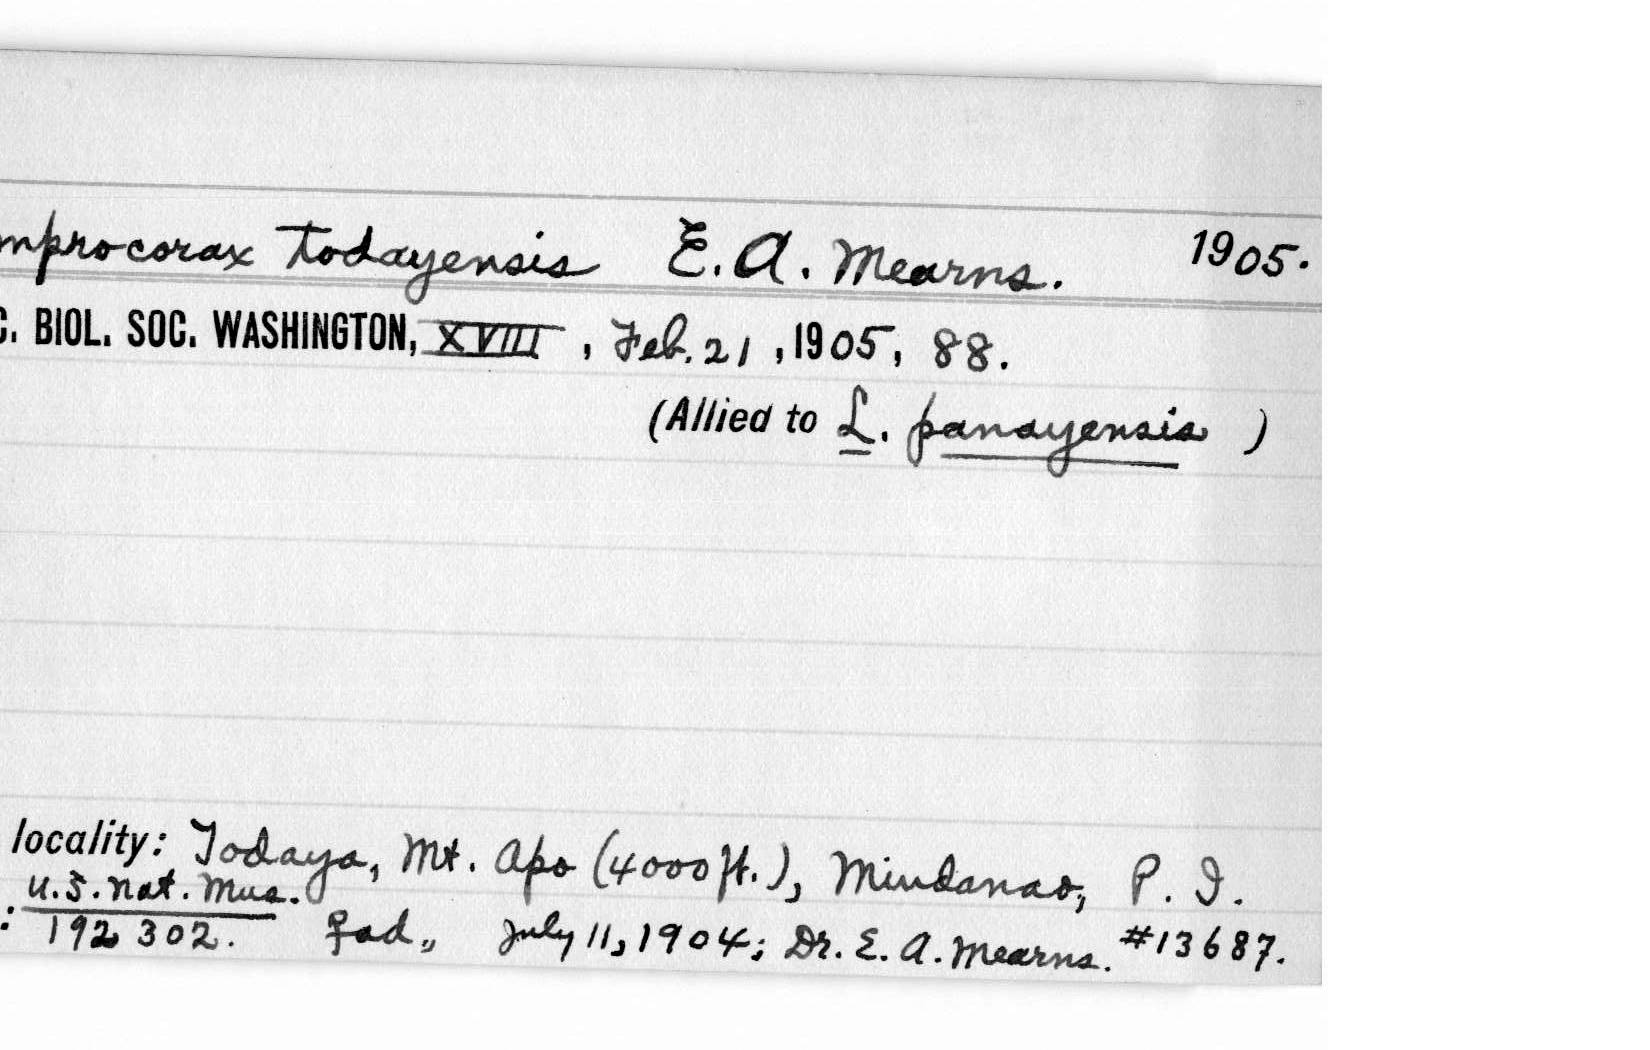 mprocorax todayensis E. A. Mearns. 1905.
C. BIOL. SOC. WASHINGTON, XVIII, Feb. 21, 1905, 88.
(Allied to L. panayensis )
locality: Todaya, Mt. Apo (4000 ft.), Mindanao, P. I.
: U.S. Nat. Mus.
192302. ♀ ad., July 11, 1904; Dr. E. A. Mearns. #13687.